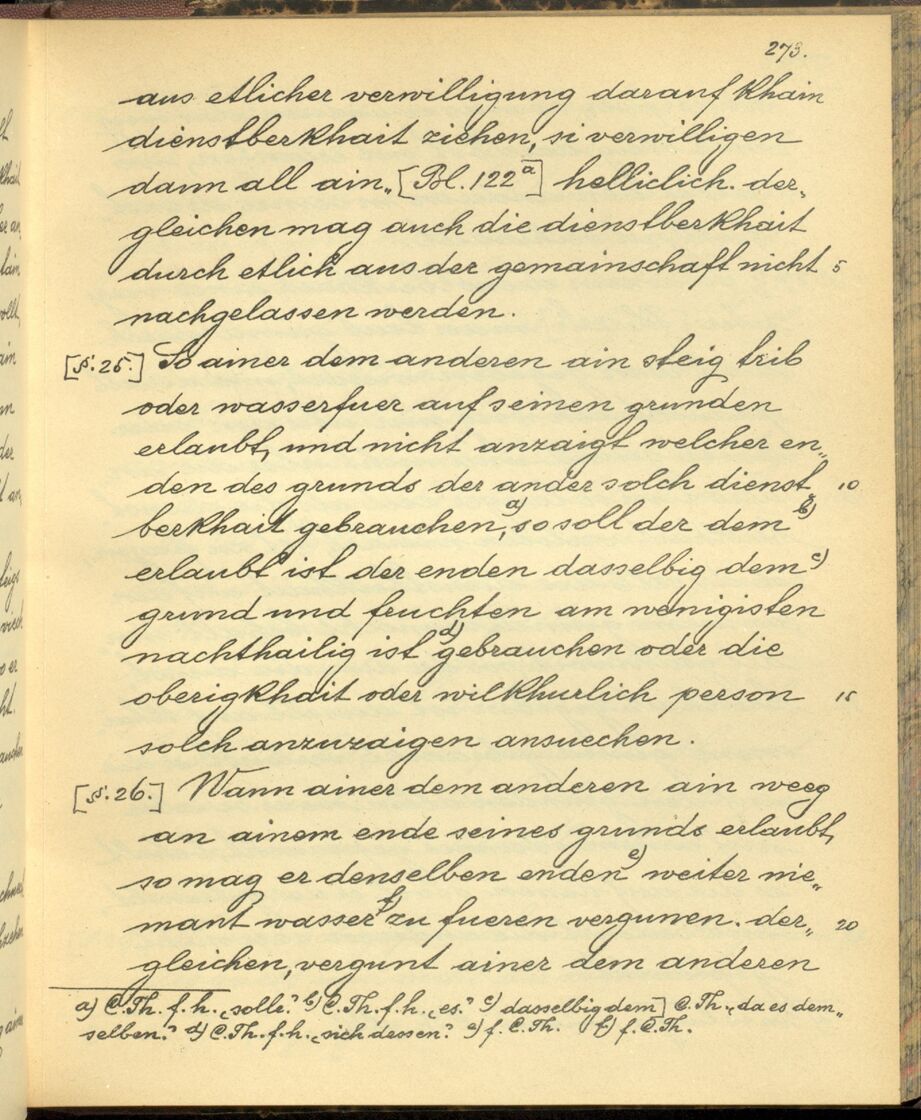 273.
aus etlicher verwilligung darauf khain
dienstberkhait ziehen, si verwilligen
dann all ain„ [Bl. 122 a] helliclich. der„
gleichen mag auch die dienstberkhait
durch etlich aus der gemainschaft nicht 5
nachgelassen werden.
[§. 25.] So ainer dem anderen ain steig trib
oder wasserfuer auf seinen grunden
erlaubt, und nicht anzaigt welcher en„
den des grunds der ander solch dienst„ 10
berkhait gebrauchen a), so soll der dem b)
erlaubt ist der enden dasselbig dem c)
grund und fruchten am wenigisten
nachthailig ist d) gebrauchen oder die
oberigkhait oder wilkhurlich person 15
solch anzuzaigen ansuechen.
[§. 26.] Wann ainer dem anderen ain weeg
an ainem ende seines grunds erlaubt,
so mag er denselben enden e) weiter nie„
mant wasser f) zu fueren vergunnen. der„ 20
gleichen, vergunt ainer dem anderen
a) C. Th. f. h. „solle.“ b) C. Th. f. h. „es.“ c) dasselbig dem] C. Th. „da es dem„
selben.“ d) C. Th. f. h. „sich dessen.“ e) f. C. Th. f) f. C. Th.